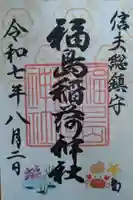 信夫総鎮守
福島稲荷神社
令和七年八月二日